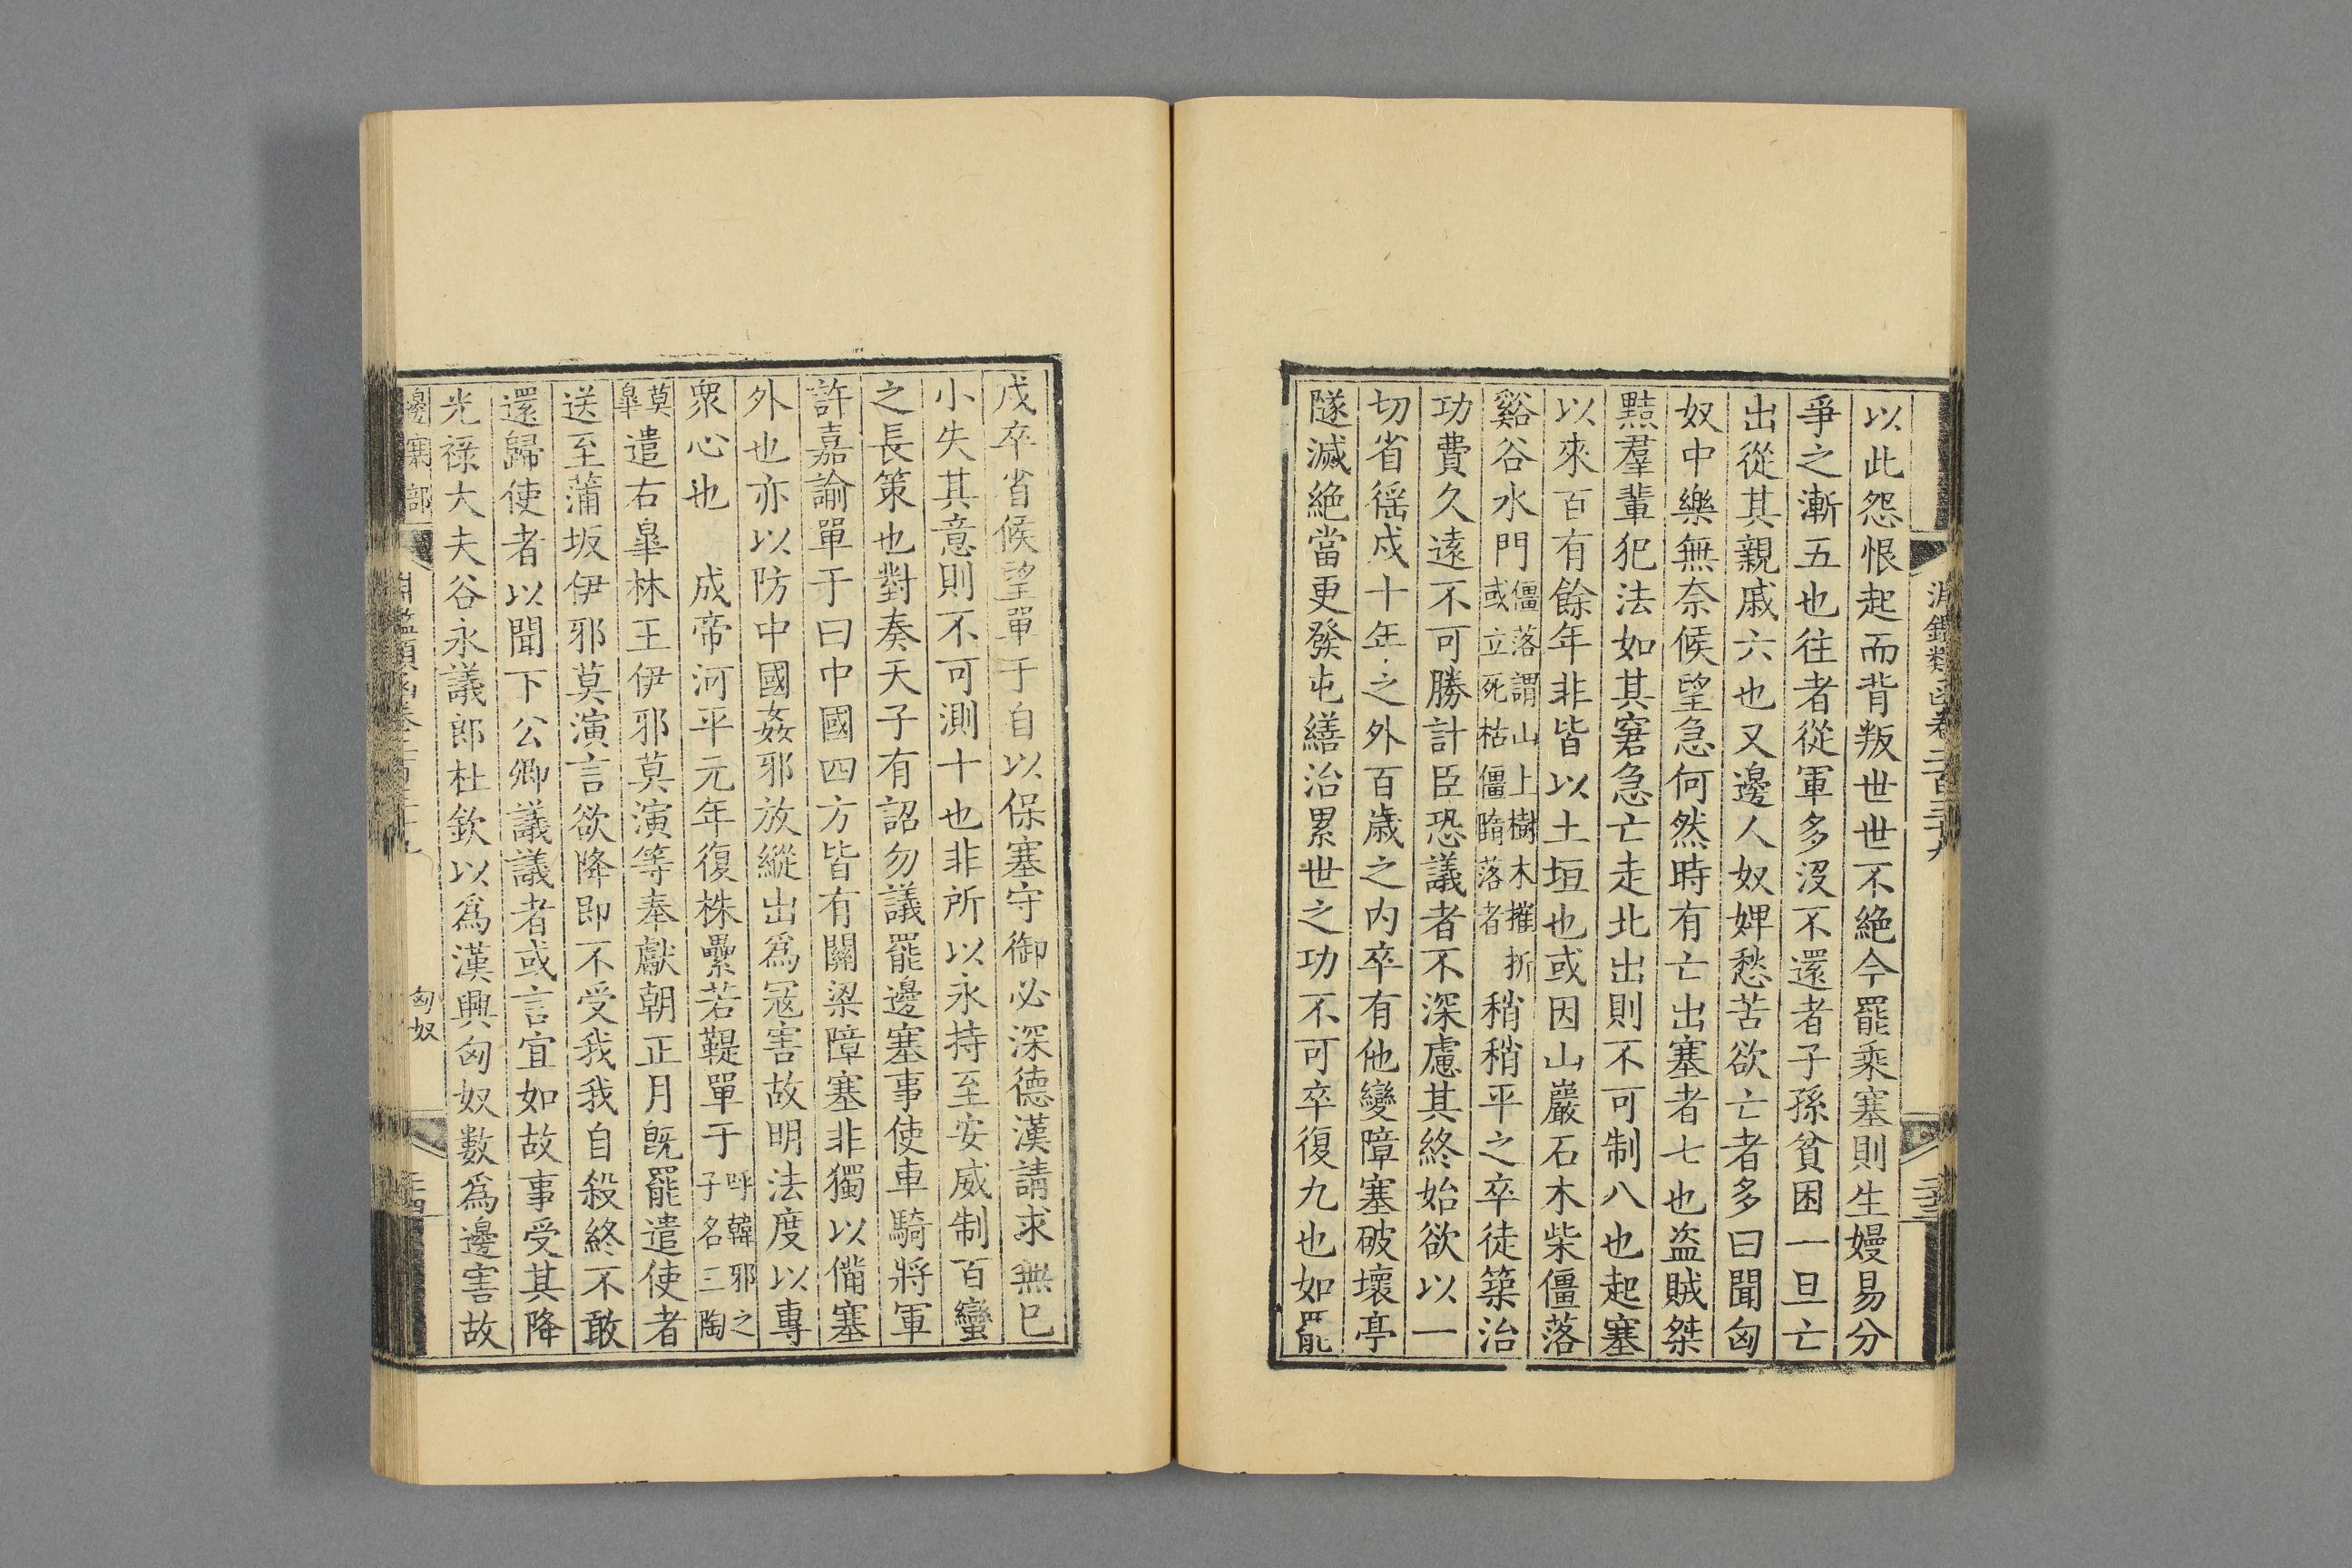 淵鑑類函卷二百三十九
以此怨恨起而背叛世世不絶今罷乘塞則生嫚易分
爭之漸五也往者從軍多沒不還者子孫貧困一旦亡
出從其親戚六也又邊人奴婢愁苦欲亡者多曰聞匈
奴中樂無奈候望急何然時有亡出塞者七也盗賊桀
黠羣輩犯法如其窘急亡走北出則不可制八也起塞
以來百有餘年非皆以土垣也或因山巖石木柴僵落
谿谷水門僵落謂山上樹木摧折或立死枯僵隋落者稍稍平之卒徒築治
功費久遠不可勝計臣恐議者不深慮其終始欲以一
切省徭戍十年之外百歲之内卒有他變障塞破壞亭
隧滅絶當更發屯繕治累世之功不可卒復九也如罷
戍卒省候望單于自以保塞守御必深德漢請求無已
小失其意則不可測十也非所以永持至安威制百蠻
之長策也對奏天子有詔勿議罷邊塞事使車騎將軍
許嘉諭單于曰中國四方皆有關梁障塞非獨以備塞
外也亦以防中國姦邪放縱出爲冦害故明法度以專
衆心也 成帝河平元年復株纍若鞮單于呼韓邪之子名三陶
莫臯遣右臯林王伊邪莫演等奉獻朝正月既罷遣使者
送至蒲坂伊邪莫演言欲降即不受我我自殺終不敢
還歸使者以聞下公卿議議者或言宜如故事受其降
光禄大夫谷永議郎杜欽以爲漢興匈奴數爲邊害故
邊塞部
匈奴